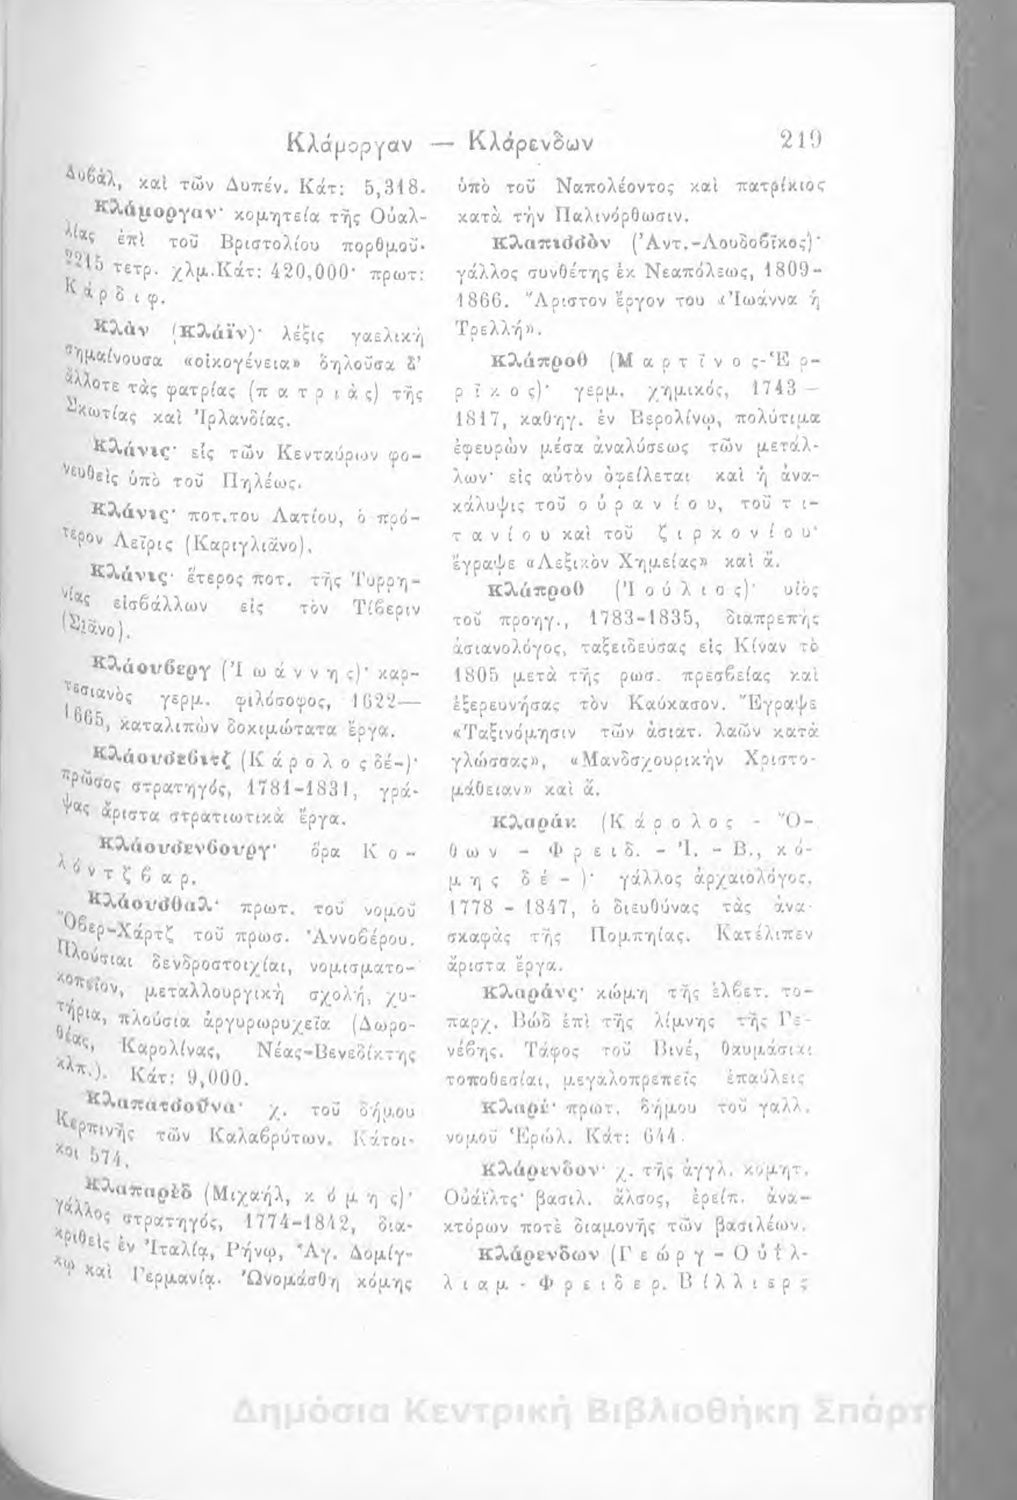 Κλάμοργαν — Κλάρενδων 219
Δυβάλ, καὶ τῶν Δυπέν. Κάτ: 5,318.
Κλάμοργαν· κομητεία τῆς Οὐαλ-
λίας ἐπὶ τοῦ Βριστολίου πορθμοῦ·
2215 τετρ. χλμ. Κάτ: 420,000· πρωτ:
Κάρδιφ.
Κλὰν (Κλάϊν)· λέξις γαελικὴ
σημαίνουσα «οἰκογένεια» δηλοῦσα δ'
ἄλλοτε τὰς φατρίας (πατριὰς) τῆς
Σκωτίας καὶ Ἰρλανδίας.
Κλάνις· εἷς τῶν Κενταύρων φο-
νευθεὶς ὑπὸ τοῦ Πηλέως.
Κλάνις· ποτ. του Λατίου, ὁ πρό-
τερον Λεῖρις (Καριγλιᾶνο).
Κλάνις· ἕτερος ποτ. τῆς Τυρρη-
νίας εἰσβάλλων εἰς τὸν Τίβεριν
(Σιᾶνο).
Κλάουβεργ (Ἰωάννης)· καρ-
τεσιανὸς γερμ. φιλόσοφος, 1622—
1665, καταλιπὼν δοκιμώτατα ἔργα.
Κλάουσεβιτζ (Κάρολος δέ-)·
πρῶσος στρατηγός, 1781-1831, γρά-
ψας ἄριστα στρατιωτικὰ ἔργα.
Κλάουσενβουργ· ὅρα Κο-
λόντζβαρ.
Κλάουσθαλ· πρωτ. τοῦ νομοῦ
Ὄβερ-Χάρτζ τοῦ πρωσ. Ἀννοβέρου.
Πλούσιαι δενδροστοιχίαι, νομισματο-
κοπεῖον, μεταλλουργικὴ σχολή, χυ-
τήρια, πλούσια ἀργυρωρυχεῖα (Δωρο-
θέας, Καρολίνας, Νέας-Βενεδίκτης
κλπ.). Κάτ: 9,000.
Κλαπατσοῦνα· χ. τοῦ δήμου
Κερπινῆς τῶν Καλαβρύτων. Κάτοι-
κοι 574.
Κλαπαρὲδ (Μιχαήλ, κόμης)·
γάλλος στρατηγός, 1774-1842, δια-
κριθεὶς ἐν Ἰταλίᾳ, Ρήνῳ, Ἁγ. Δομίγ-
κῳ καὶ Γερμανίᾳ. Ὠνομάσθη κόμης
ὑπὸ τοῦ Ναπολέοντος καὶ πατρίκιος
κατὰ τὴν Παλινόρθωσιν.
Κλαπισσὸν (Ἀντ.-Λουδοβῖκος)·
γάλλος συνθέτης ἐκ Νεαπόλεως, 1809-
1866. Ἄριστον ἔργον του «Ἰωάννα ἡ
Τρελλή».
Κλάπροθ (Μαρτῖνος-Ἐρ-
ρῖκος)· γερμ. χημικός, 1743 —
1817, καθηγ. ἐν Βερολίνῳ, πολύτιμα
ἐφευρὼν μέσα ἀναλύσεως τῶν μετάλ-
λων· εἰς αὐτὸν ὀφείλεται καὶ ἡ ἀνα-
κάλυψις τοῦ οὐρανίου, τοῦ τι-
τανίου καὶ τοῦ ζιρκονίου·
ἔγραψε «Λεξικὸν Χημείας» καὶ ἄ.
Κλάπροθ (Ἰούλιος)· υἱὸς
τοῦ προηγ., 1783-1835, διαπρεπὴς
ἀσιανολόγος, ταξειδεύσας εἰς Κίναν τὸ
1805 μετὰ τῆς ρωσ. πρεσβείας καὶ
ἐξερευνήσας τὸν Καύκασον. Ἔγραψε
«Ταξινόμησιν τῶν ἀσιατ. λαῶν κατὰ
γλώσσας», «Μανδσχουρικὴν Χριστο-
μάθειαν» καὶ ἄ.
Κλαρὰκ (Κάρολος - Ὄ-
θων - Φρειδ. - Ἰ. - Β., κό-
μης δέ-)· γάλλος ἀρχαιολόγος,
1778 - 1847, ὁ διευθύνας τὰς ἀνα-
σκαφὰς τῆς Πομπηίας. Κατέλιπεν
ἄριστα ἔργα.
Κλαράνς· κώμη τῆς ἑλβετ. το-
παρχ. Βὼδ ἐπὶ τῆς λίμνης τῆς Γε-
νέβης. Τάφος τοῦ Βινέ, θαυμάσιαι
τοποθεσίαι, μεγαλοπρεπεῖς ἐπαύλεις
Κλαρέ· πρωτ. δήμου τοῦ γαλλ.
νομοῦ Ἐρώλ. Κάτ: 644.
Κλάρενδον· χ. τῆς ἀγγλ. κομητ.
Οὐάϊλτς· βασιλ. ἄλσος, ἐρείπ. ἀνα-
κτόρων ποτὲ διαμονῆς τῶν βασιλέων.
Κλάρενδων (Γεώργ-Οὐΐλ-
λιαμ-Φρειδερ. Βίλλιερς
Δημόσια Κεντρική Βιβλιοθήκη Σπάρτ